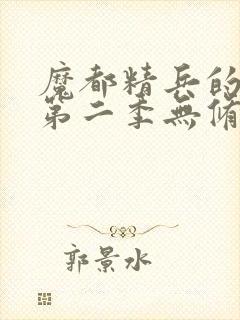 魔都精兵的
第二季無脩
郭景水